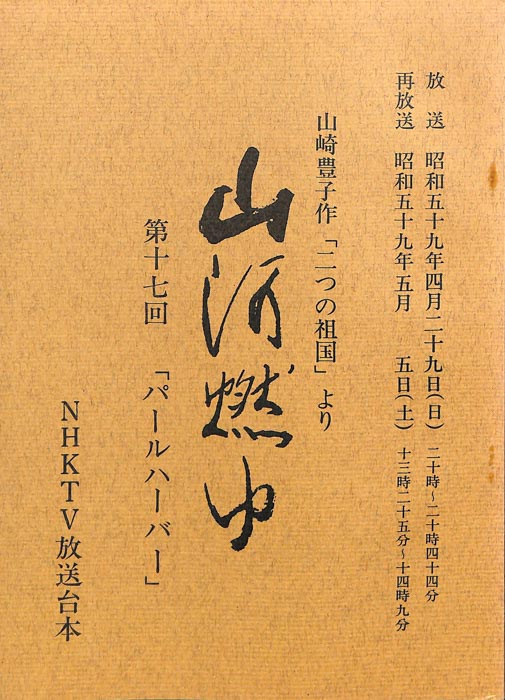 放送 昭和五十九年四月二十九日(日) 二十時～二十時四十四分
再放送 昭和五十九年五月 五日(土) 十三時二十五分～十四時九分
山崎豊子作「二つの祖国」より
山河燃ゆ
第十七回 「パールハーバー」
NHKTV放送台本